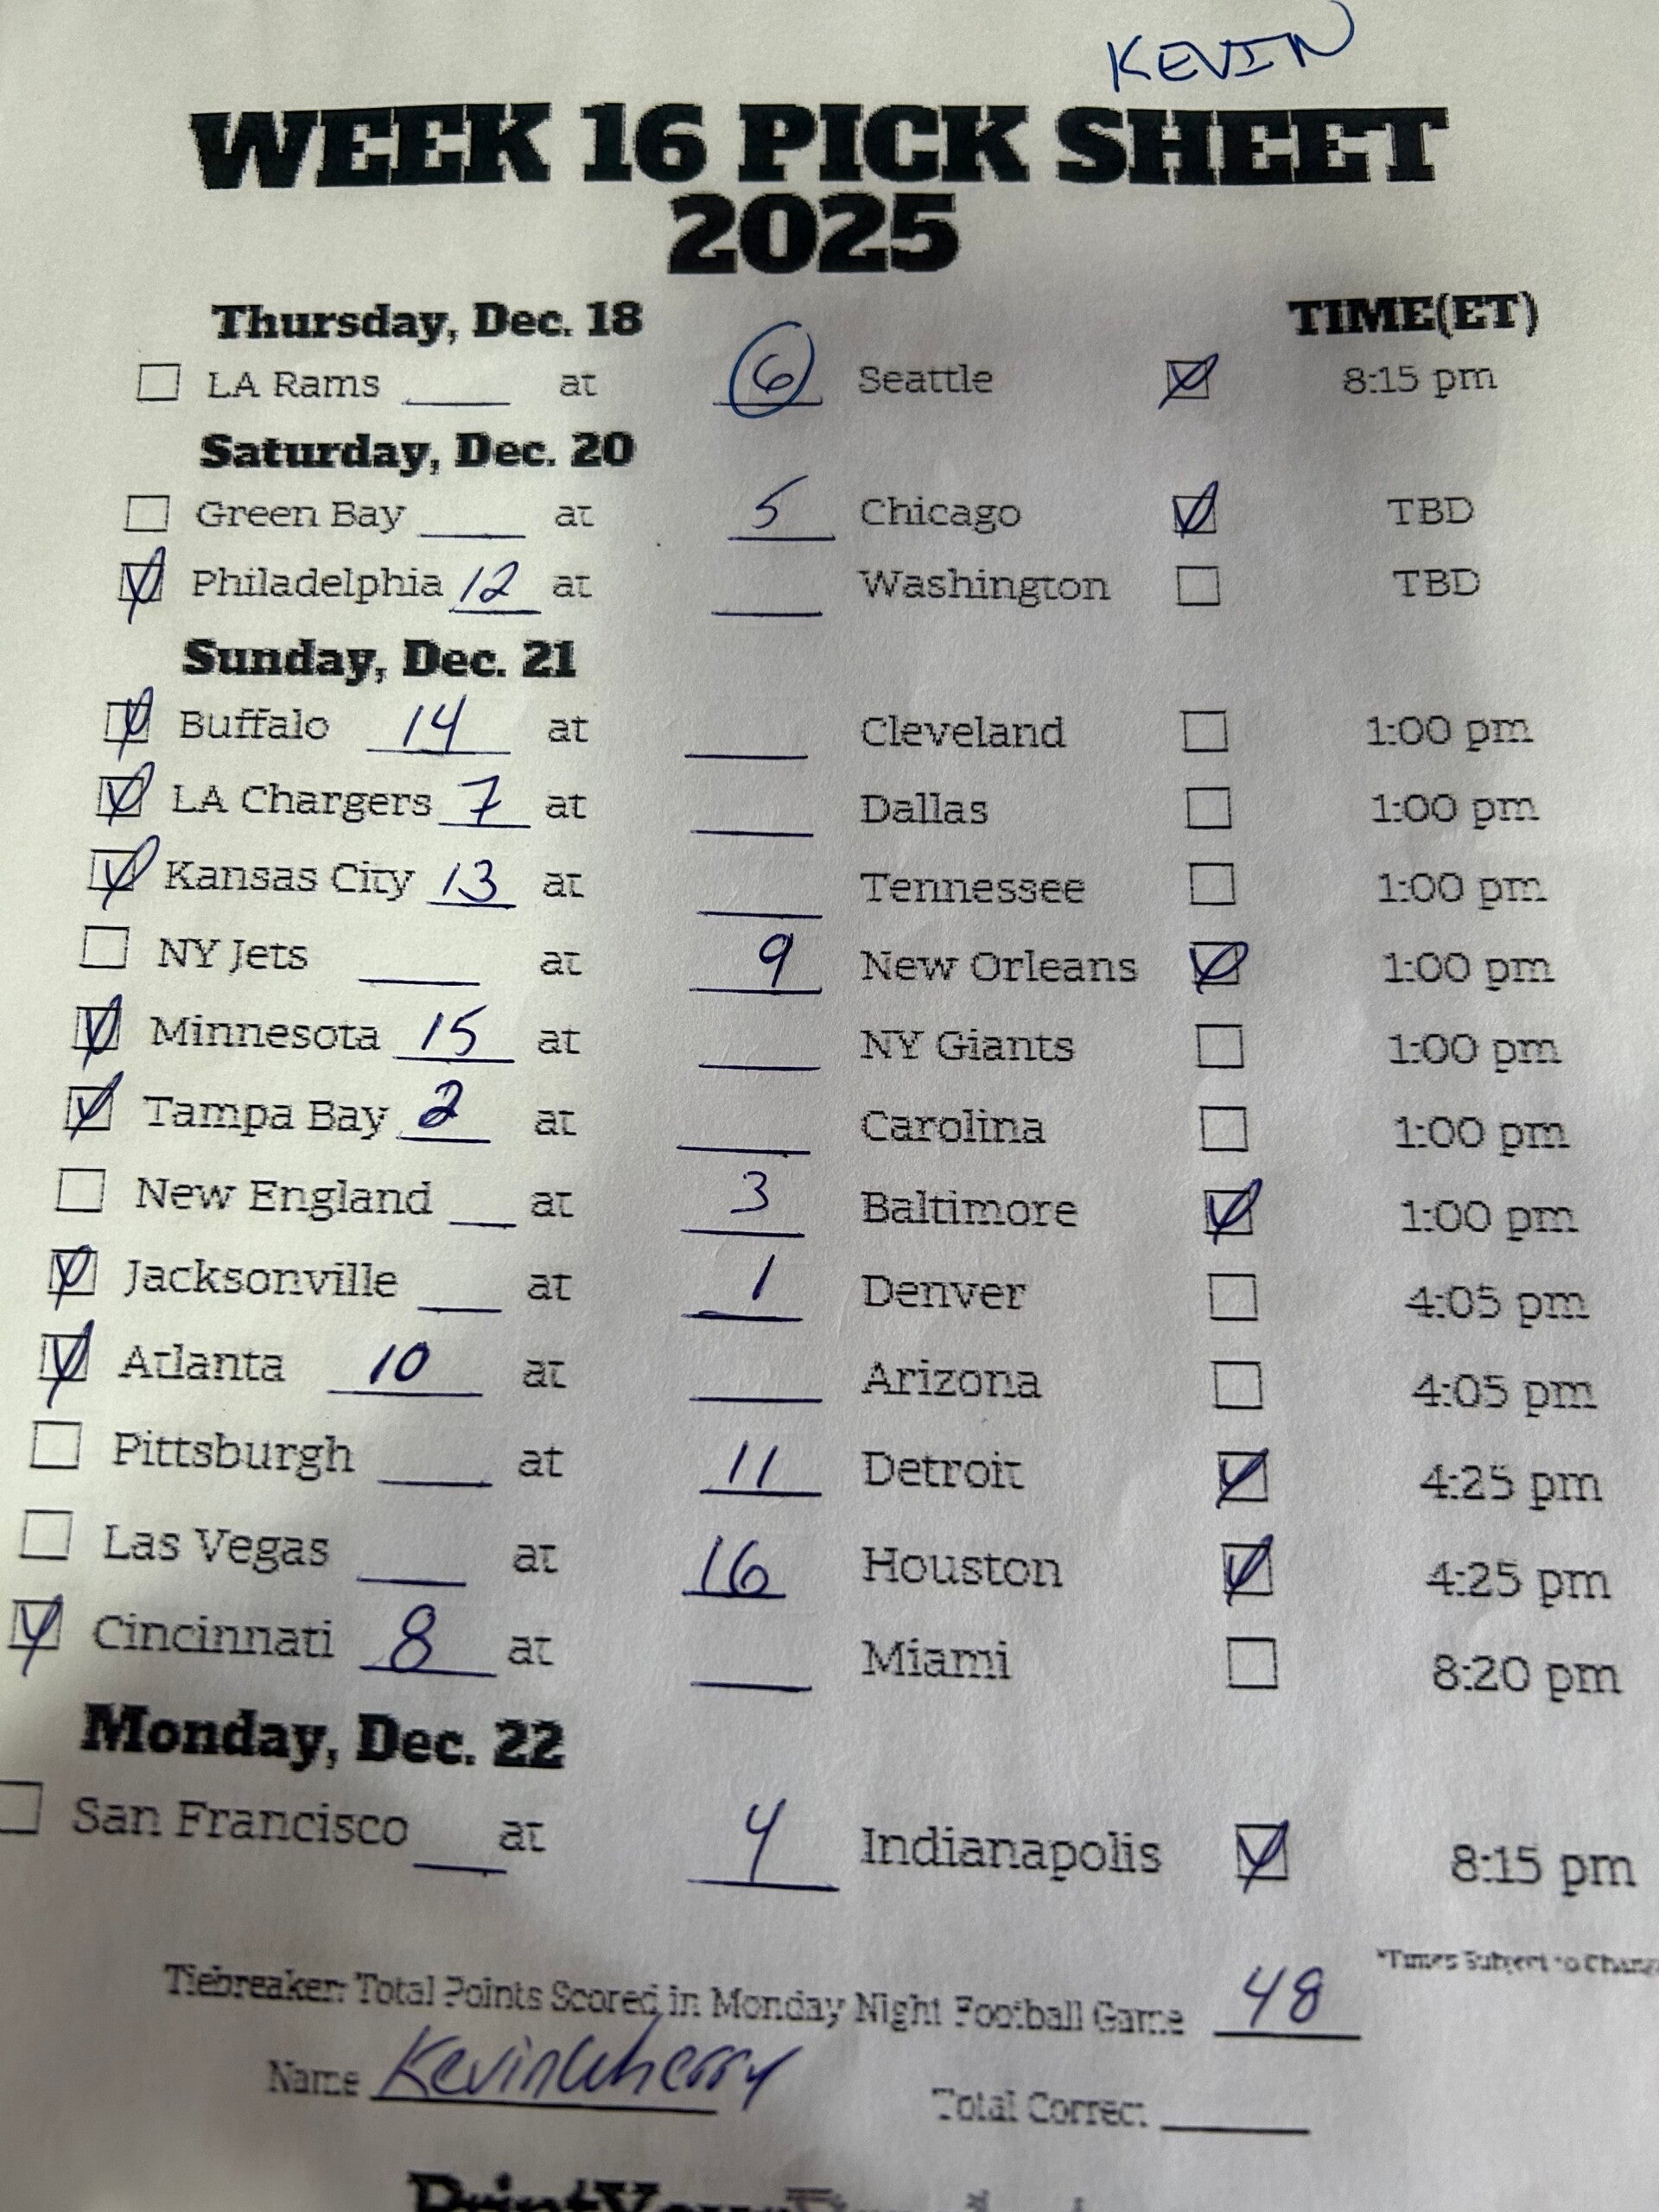 KEVIN
WEEK 16 PICK SHEET
2025
Thursday, Dec. 18 TIME(ET)
LA Rams ____ at 6 Seattle 8:15 pm
Saturday, Dec. 20
Green Bay ____ at 5 Chicago TBD
Philadelphia 12 at ____ Washington TBD
Sunday, Dec. 21
Buffalo 14 at ____ Cleveland 1:00 pm
LA Chargers 7 at ____ Dallas 1:00 pm
Kansas City 13 at ____ Tennessee 1:00 pm
NY Jets ____ at 9 New Orleans 1:00 pm
Minnesota 15 at ____ NY Giants 1:00 pm
Tampa Bay 2 at ____ Carolina 1:00 pm
New England ____ at 3 Baltimore 1:00 pm
Jacksonville ____ at 1 Denver 4:05 pm
Atlanta 10 at ____ Arizona 4:05 pm
Pittsburgh ____ at 11 Detroit 4:25 pm
Las Vegas ____ at 16 Houston 4:25 pm
Cincinnati 8 at ____ Miami 8:20 pm
Monday, Dec. 22
San Francisco ____ at 4 Indianapolis 8:15 pm
*Times Subject to Chang
Tiebreaker: Total Points Scored in Monday Night Football Game 48
Name Kevin Wherry Total Correct ____